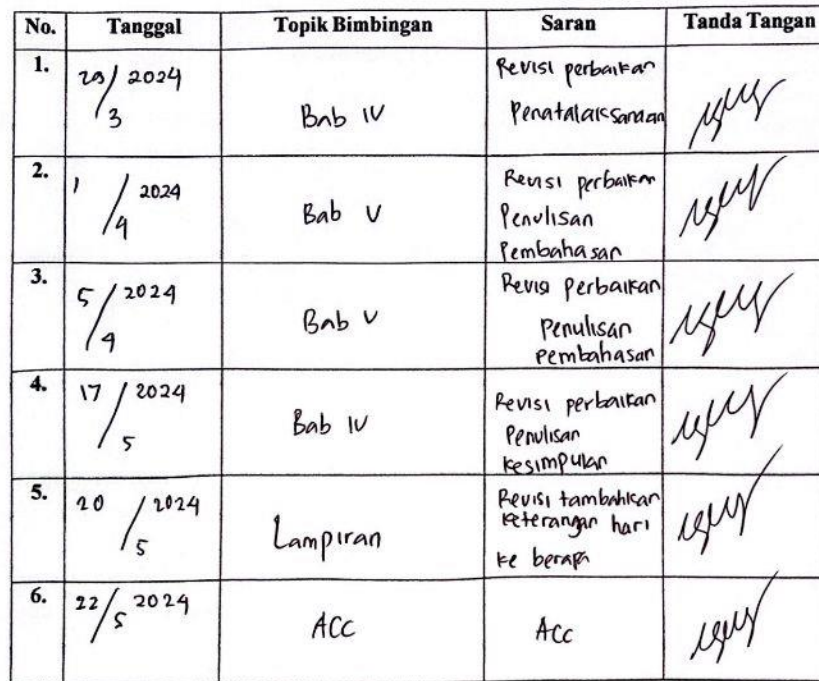 No. Tanggal Topik Bimbingan Saran Tanda Tangan
1. 29/3 2024 Bab IV Revisi perbaikan
Penatalaksanaan
2. 1/4 2024 Bab V Revisi perbaikan
Penulisan
Pembahasan
3. 5/4 2024 Bab V Revisi perbaikan
Penulisan
Pembahasan
4. 17/5 2024 Bab IV Revisi perbaikan
Penulisan
Kesimpulan
5. 20/5 2024 Lampiran Revisi tambahkan
keterangan hari
ke berapa
6. 22/5 2024 ACC ACC